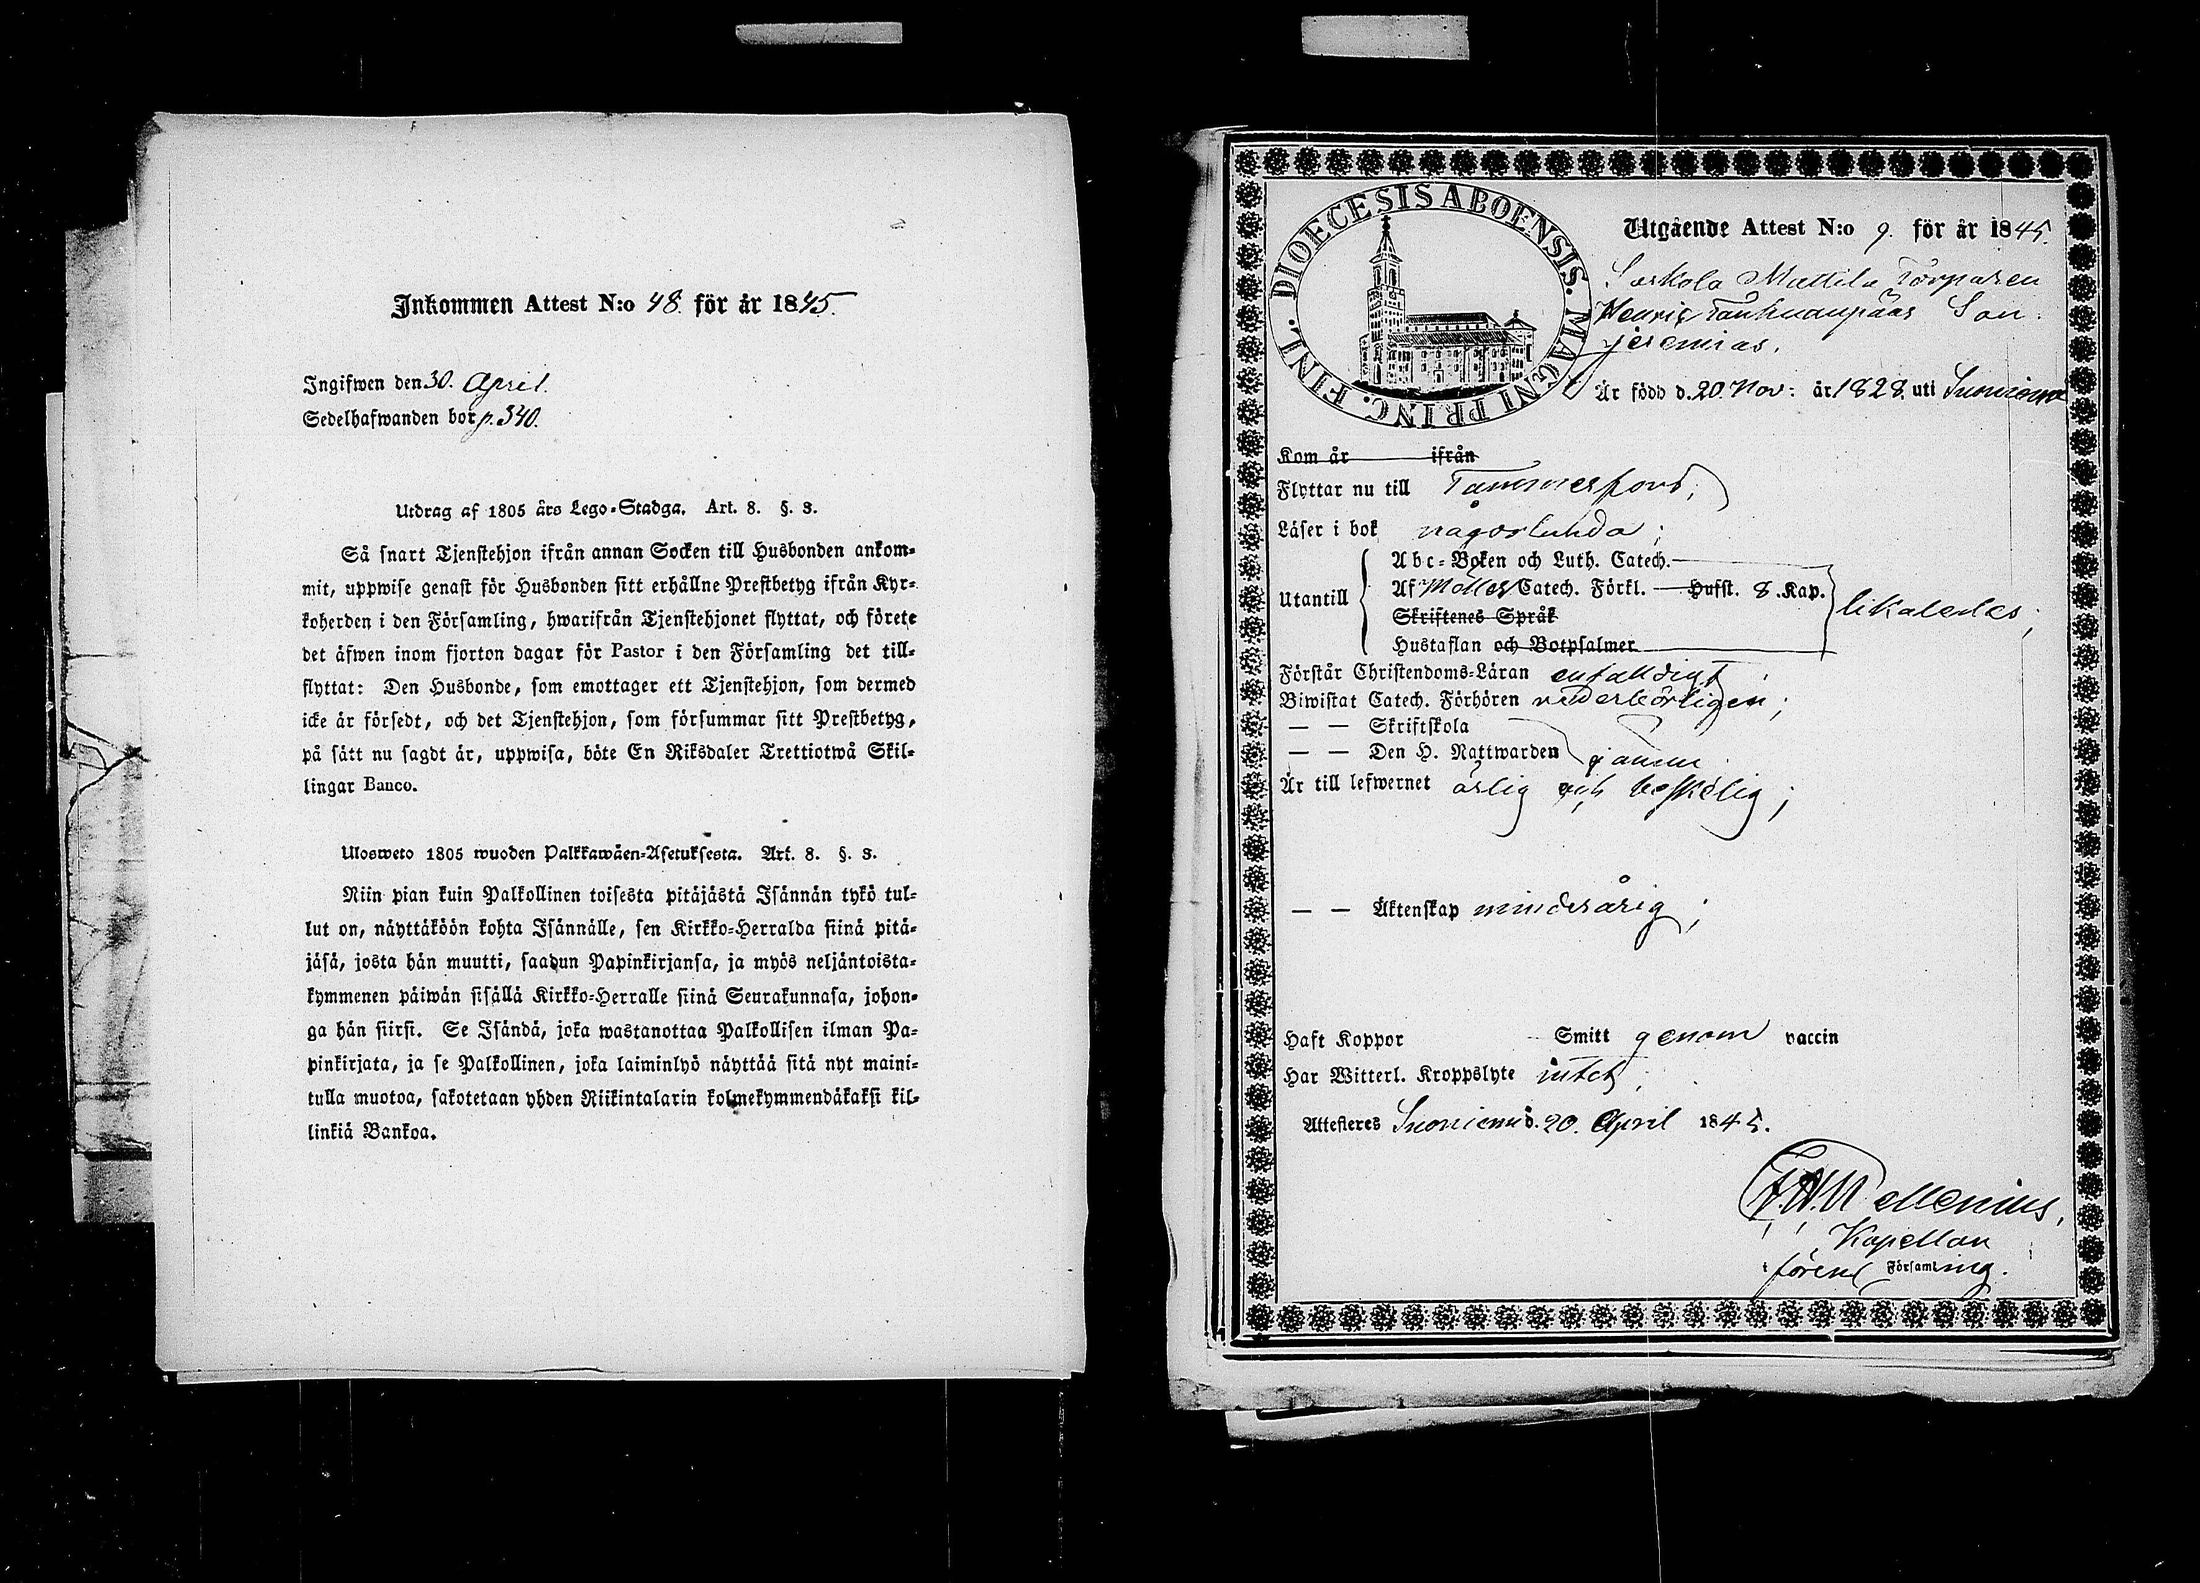 Inkommen Attest N:o 48. för år 1845.
Ingifwen den 30. April.
Sedelhafwanden bor p. 340.
Utdrag af 1805 års Lego-Stadga. Art. 8. §. 3.
Så snart Tjenstehjon ifrån annan Socken till Husbonden ankom-
mit, uppwise genast för Husbonden sitt erhållne Prestbetyg ifrån Kyr-
koherden i den Församling, hwarifrån Tjenstehjonet flyttat, och förete
det äfwen inom fjorton dagar för Pastor i den Församling det till-
flyttat: Den Husbonde, som emottager ett Tjenstehjon, som dermed
icke är försedt, och det Tjenstehjon, som försummar sitt Prestbetyg,
på sätt nu sagdt är, uppwisa, böte En Riksdaler Trettiotwå Skil-
lingar Banco.
Ulosweto 1805 wuoden Palkkawäen-Asetuksesta. Art. 8. §. 3.
Niin pian kuin Palkollinen toisesta pitäjästä Isännän tykö tul-
lut on, näyttäköön kohta Isännälle, sen Kirkko-Herralda siinä pitä-
jäsä, josta hän muutti, saadun Papinkirjansa, ja myös neljäntoista-
kymmenen päiwän sisällä Kirkko-Herralle siinä Seurakunnasa, johon-
ga hän siirsi. Se Isändä, joka wastanottaa Palkollisen ilman Pa-
pinkirjata, ja se Palkollinen, joka laiminlyö näyttää sitä nyt maini-
tulla muotoa, sakotetaan yhden Riikintalarin kolmekymmendäkaksi kil-
linkiä Bankoa.
DIOECESIS ABOENSIS. MAGNI PRINC. FINL.
Utgående Attest N:o 9. för år 1845.
Mattila Torparen
Henric Tanhuanpääs Son
Jeremias.
Är född d. 20. Nov: år 1828. uti Suoniemi
Kom år ifrån
Flyttar nu till Tammerfors;
Läser i bok någorlunda;
Utantill
Abc-Boken och Luth. Catech.
Af Möllers Catech. Förkl. Hufst. 8. Kap.
Skriftenes Språk
Hustaflan och Botpsalmer
likaledes;
Förstår Christendoms-Läran enfaldigt;
Biwistat Catech. Förhören vederbörligen;
— — Skriftskola
— — Den H. Nattwarden
Är till lefwernet ärlig och beskedlig;
— — Äktenskap minderårig;
Haft Koppor Smitt genom vaccin
Har Witterl. Kroppslyte intet;
Attesteres Suoniemi d. 20. April 1845.
Mellenius,
Kapellan
i förend Församling.